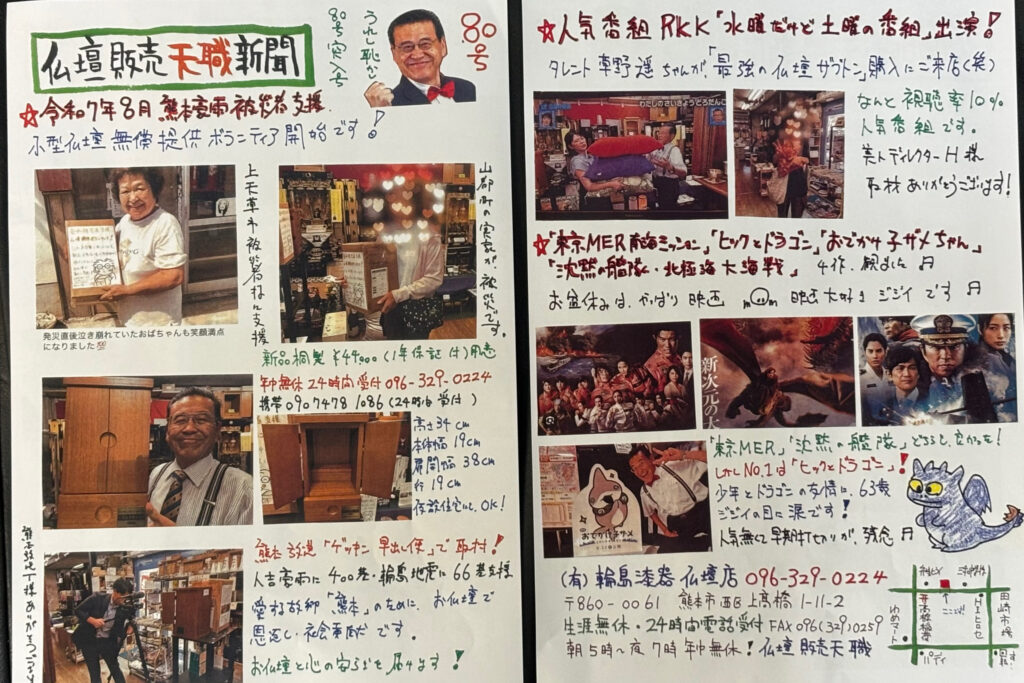 仏壇販売天職新聞
うれし恥かし
80号突入号
80号
☆令和7年8月 熊本豪雨 被災者支援
小型仏壇 無償提供 ボランティア開始です!
上天草市被災者様に支援
山都町の実家が、被災です。
発災直後泣き崩れていたおばちゃんも笑顔満点
になりました
新品桐製 ¥44000(1年保証付)用意
年中無休 24時間受付 096-329-0224
携帯 09074781086 (24時間受付)
高さ34cm
本体幅 19cm
扉開幅 38cm
奥行 19cm
仮設住宅にも、OK!
熊本放送「ゲツキン早出し便」で取材!
人吉豪雨に400基・輪島地震に66基支援
愛する故郷「熊本」のために、お仏壇で
恩返し・社会貢献です。
お仏壇と心の安らぎを届けます!
☆人気番組 RKK「水曜だけど土曜の番組」出演!
タレント 草野遥ちゃんが「最強の仏壇ザブトン」購入にご来店(笑)
わたしのさいきょうとろだんこ
なんと視聴率10%
人気番組です。
美人ディレクターH様
取材ありがとうございます!
☆「東京MER 南海ミッション」「ヒックとドラゴン」「おでかけ子ザメちゃん」
「沈黙の艦隊・北極海大海戦」 4作、観ました
お盆休みは、やっぱり映画 映画大好きジジイです
新次元の
「東京MER」「沈黙の艦隊」どちらも、良かった!
しかしNo.1は「ヒックとドラゴン」!
少年とドラゴンの友情に、63歳
ジジイの目に涙です!
人気無くて早期打切りが、残念
おでかけ子ザメ
(有)輪島漆器仏壇店 096-329-0224
〒860-0061 熊本市西区上高橋1-11-2
生涯無休・24時間電話受付 FAX096(329)0259
朝5時~夜7時 年中無休! 仏壇販売天職
ここ
ヒロセ
田崎市場
高橋稲荷
わさマート